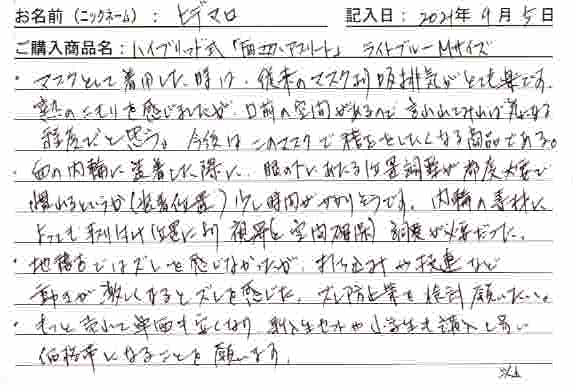 お名前（ニックネーム）：ヒデマロ　記入日：2021年9月5日
ご購入商品名：ハイブリット式「面ガアスリート」 ライトブルーMサイズ
・マスクとして着用した時は、従来のマスクより断然排気がとても楽です。
熱のこもりを感じましたが、口前の空間があるので言われてみれば気になる
程度だと思う。今後はこのマスクで稽古をしたくなる商品である。
・面の内輪に装着した際に、眼の下にあたる位置調整が都度大変で
慣れるというか(装着位置)少し時間がかかりそうです。内輪の素材に
よっても取り付け位置により視界(と空間確保)調整が必要だった。
・地稽古ではズレを感じなかったが、打ち込みや技連など
動きが激しくなるとズレを感じた。ズレ防止策を検討願いたい。
・もっと売れて単価も安くなり、新入生セットや小学生も購入し易い
価格帯になることを願います。
以上